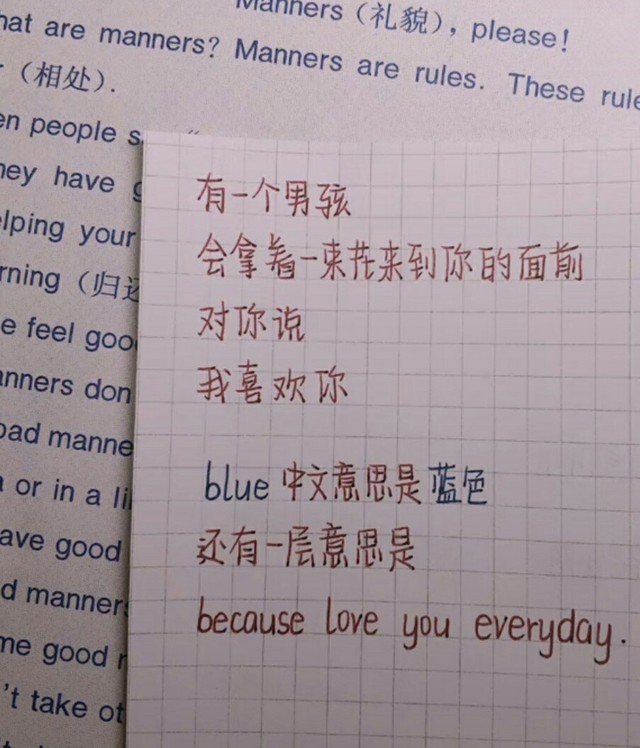 Manners（礼貌）, please!
hat are manners? Manners are rules. These rule
（相处）.
en people s
hey have g
elping your
rning（归还
e feel goo
anners don
bad manne
a or in a li
ave good
d manners
me good
't take ot
有一个男孩
会拿着一束花来到你的面前
对你说
我喜欢你
blue 中文意思是蓝色
还有一层意思是
because love you everyday.